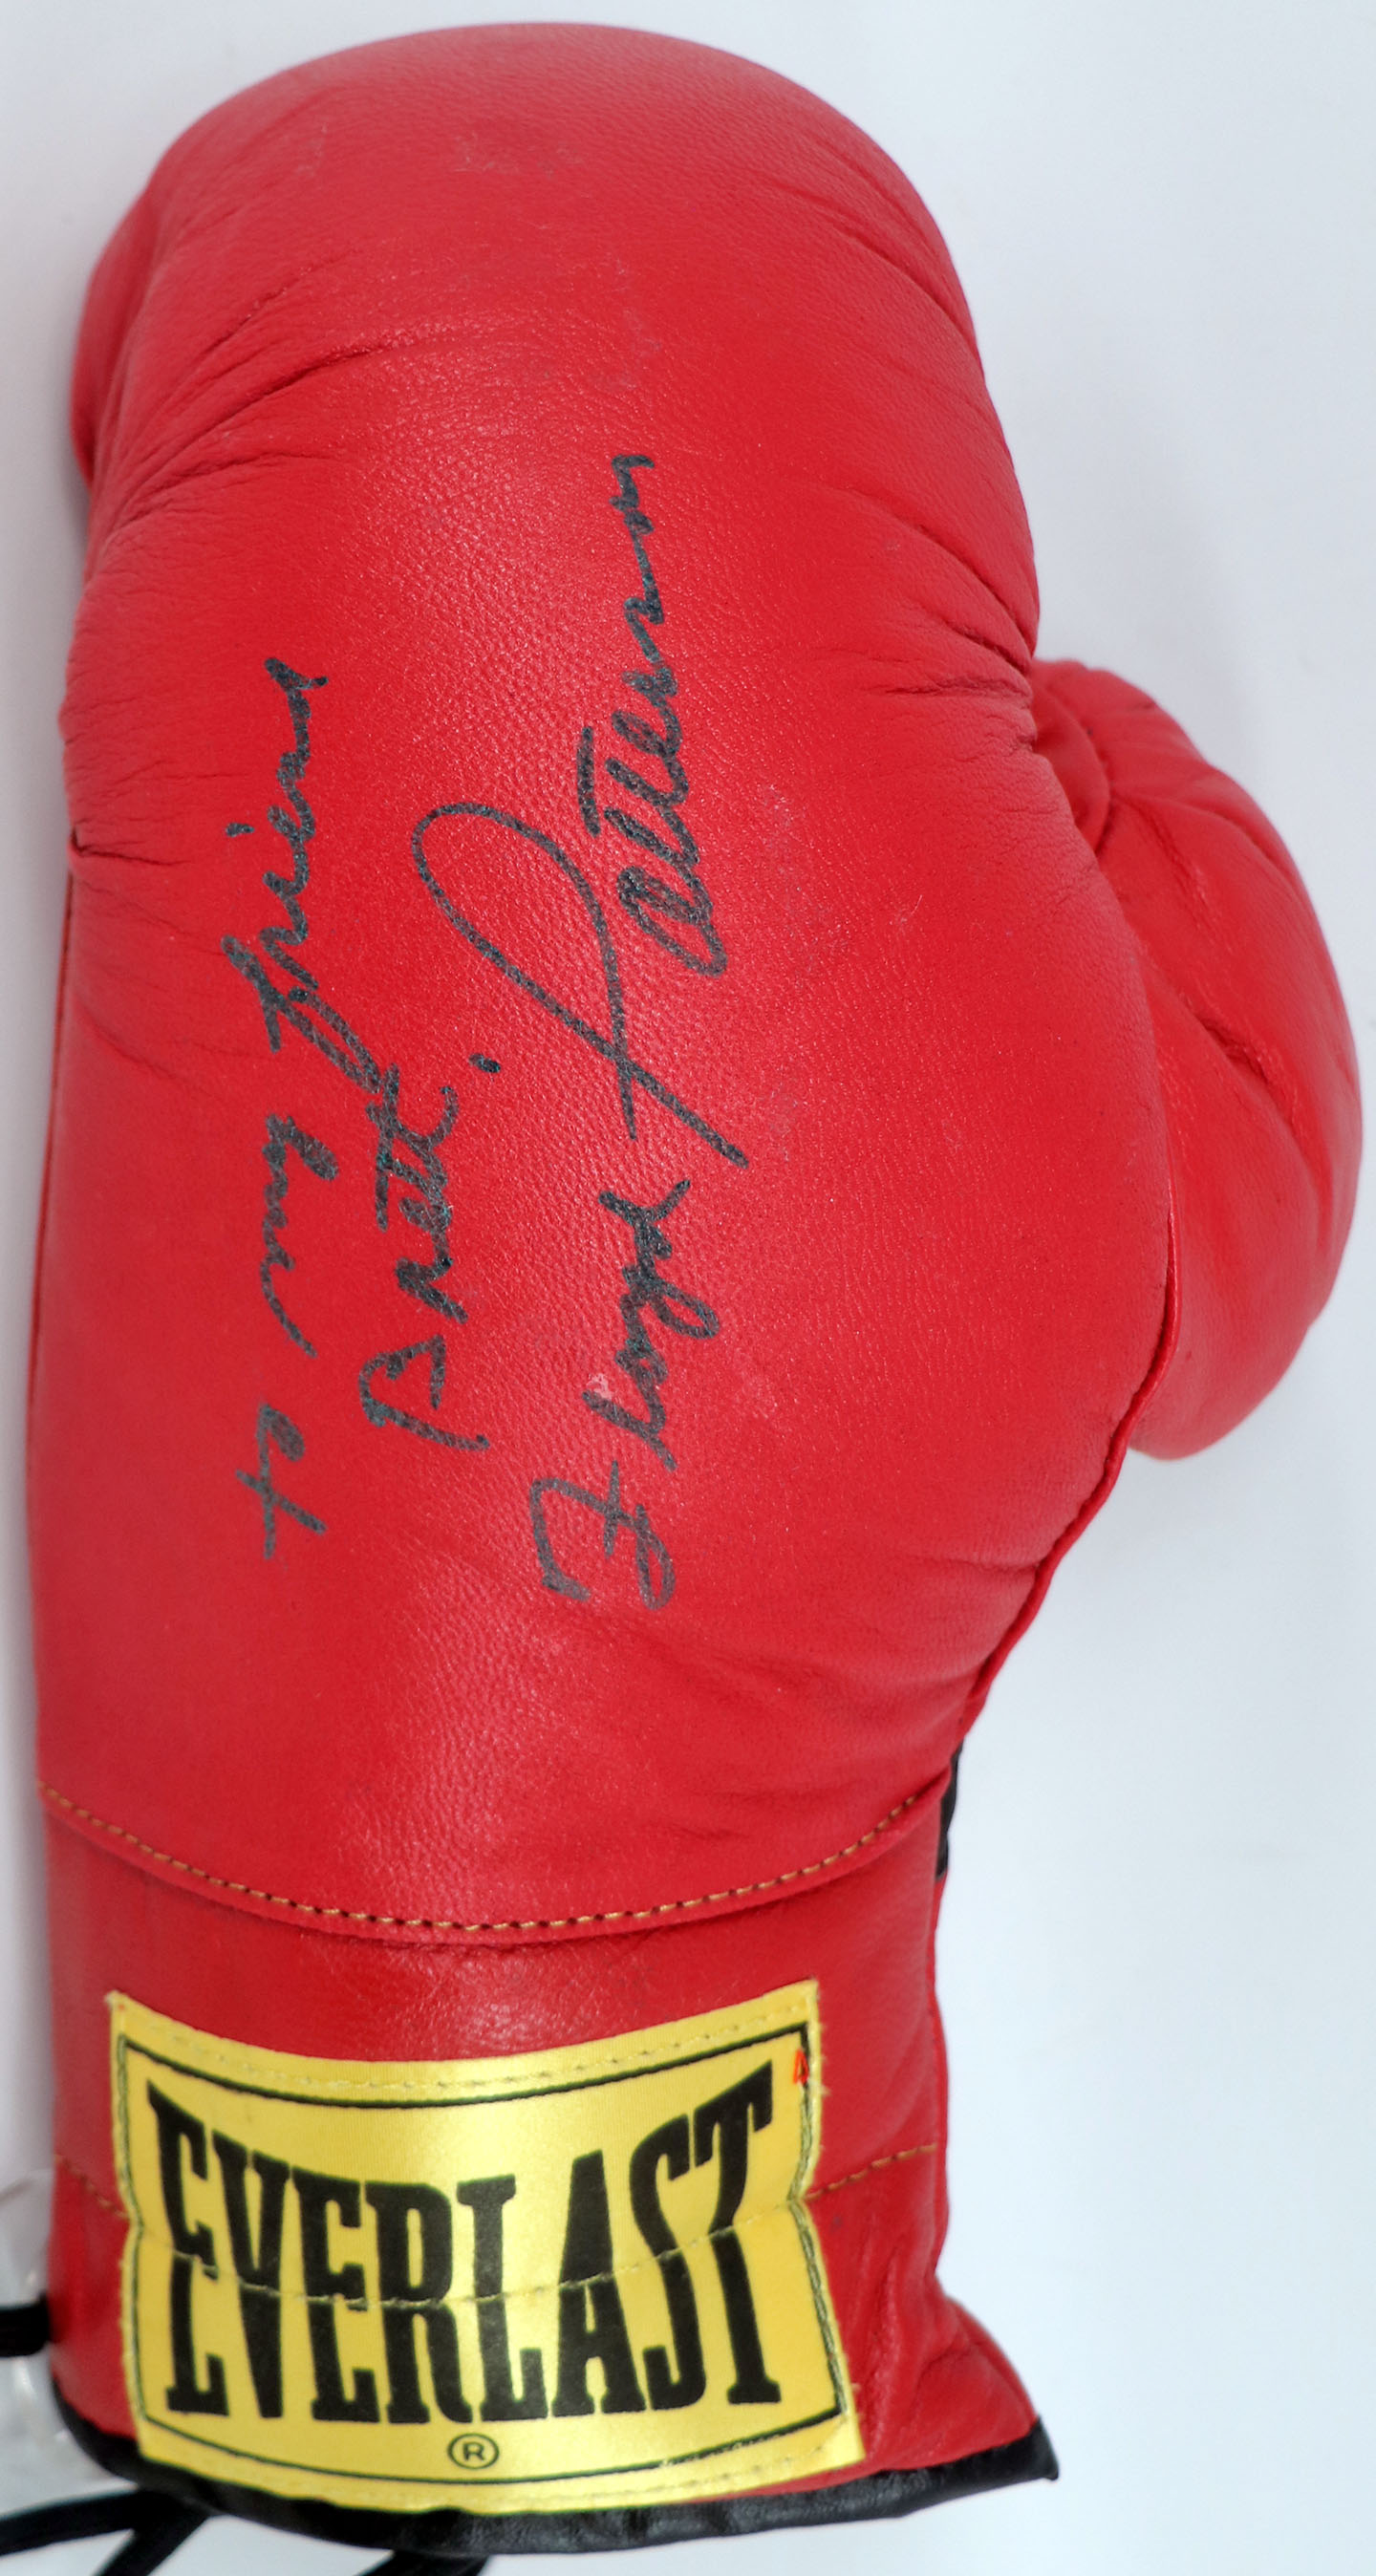 to my Friend
Brett.
Floyd Patterson
EVERLAST
®